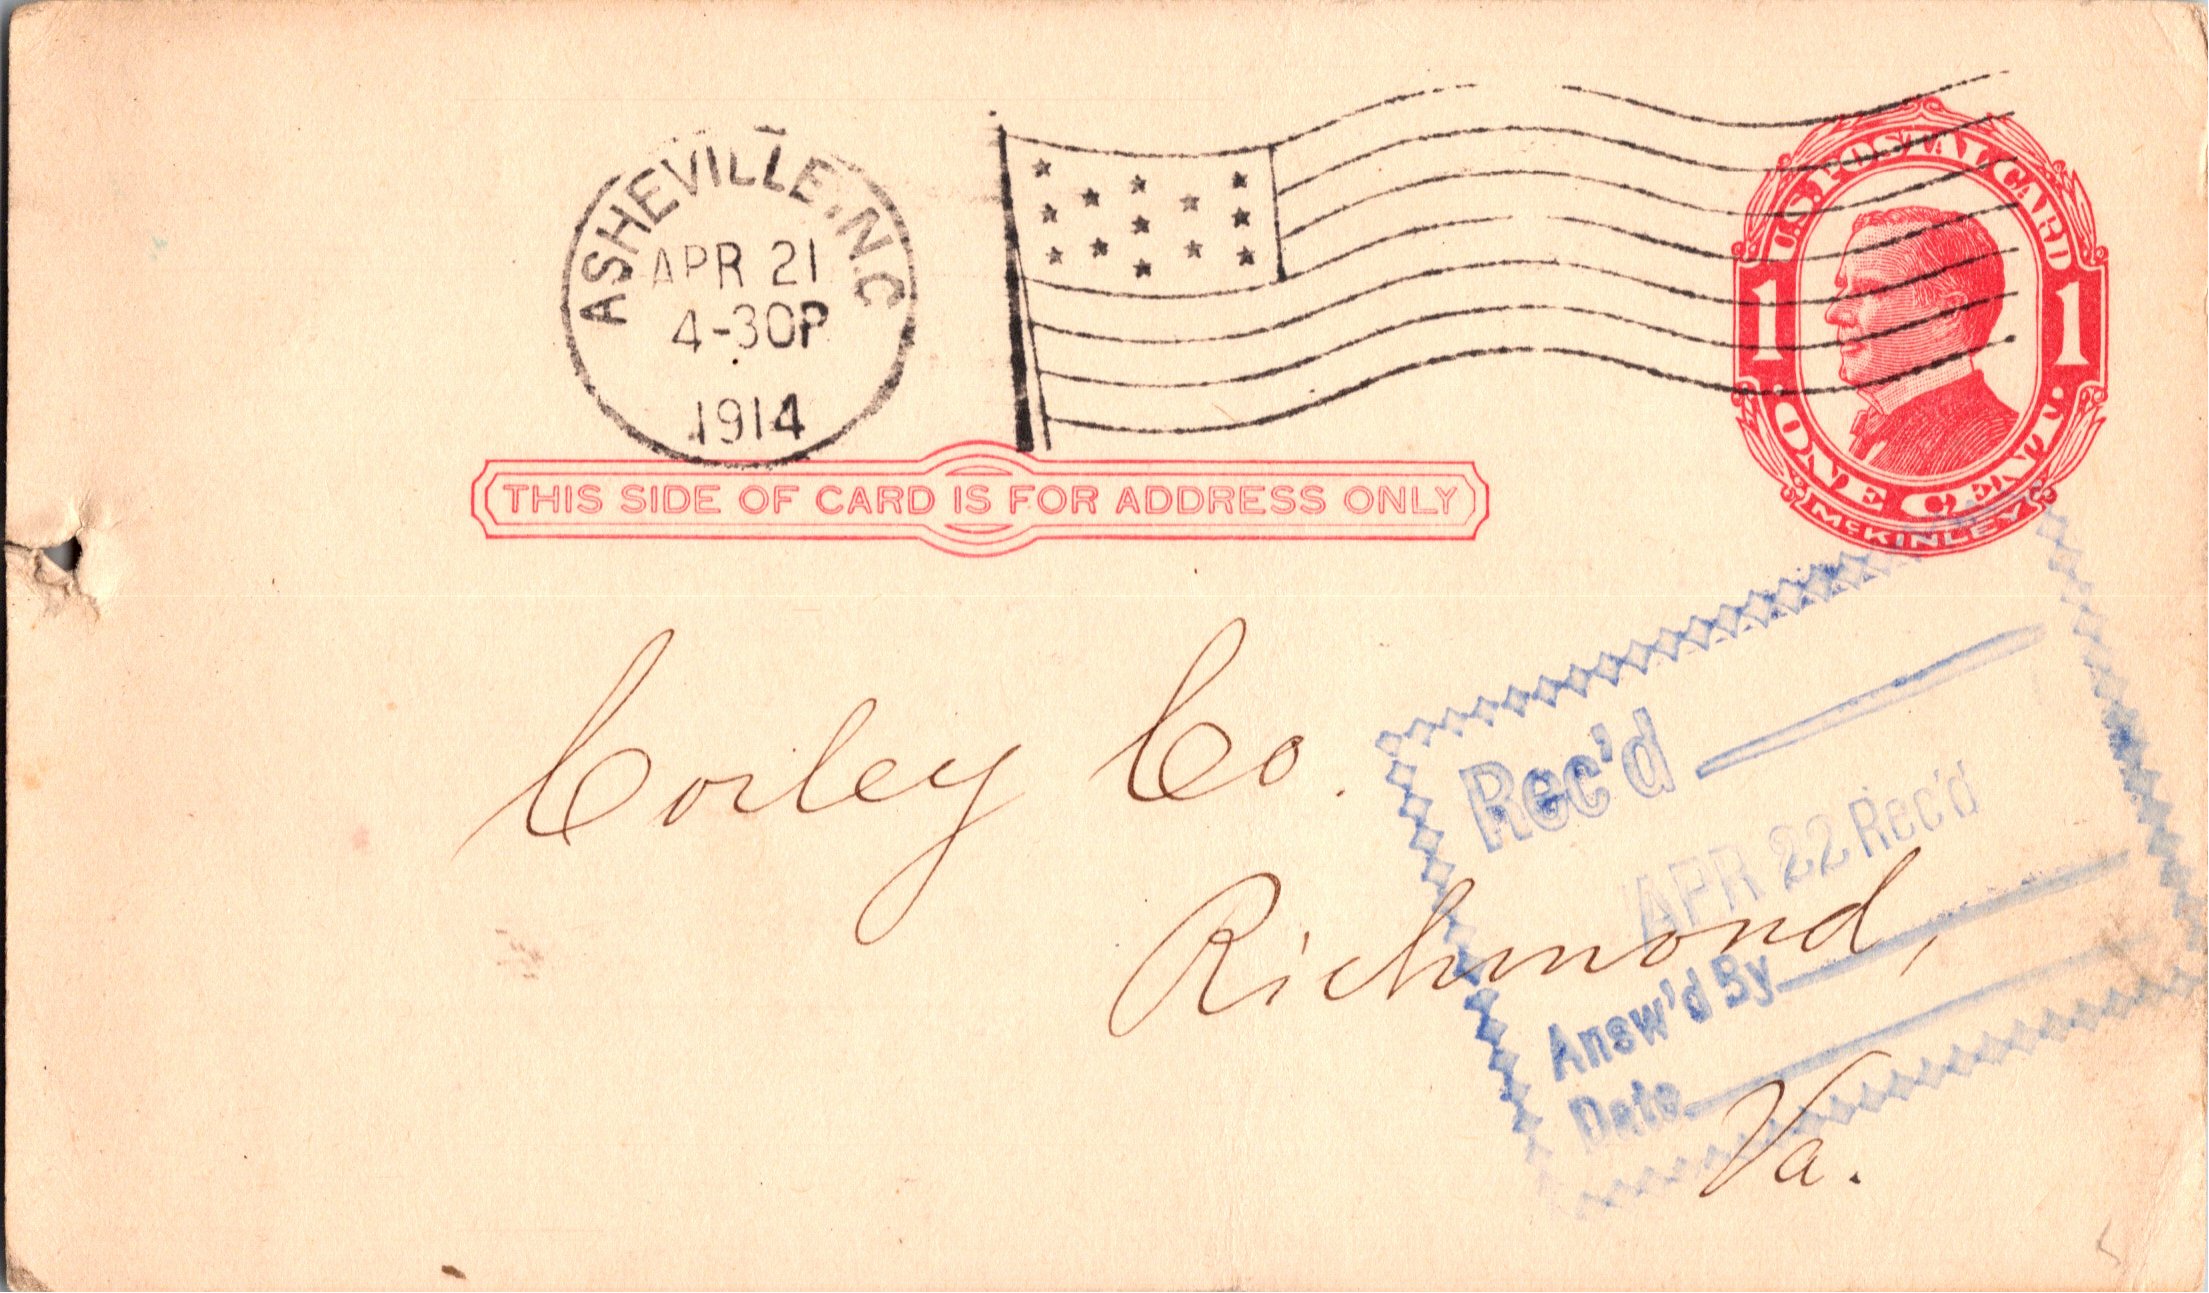 ASHEVILLE, N.C.
APR 21
4-30P
1914
U.S. POSTAL CARD
1 1
ONE CENT
McKINLEY
THIS SIDE OF CARD IS FOR ADDRESS ONLY
Corley Co.
Richmond,
Va.
Rec'd
APR 22 Rec'd
Answ'd By
Date